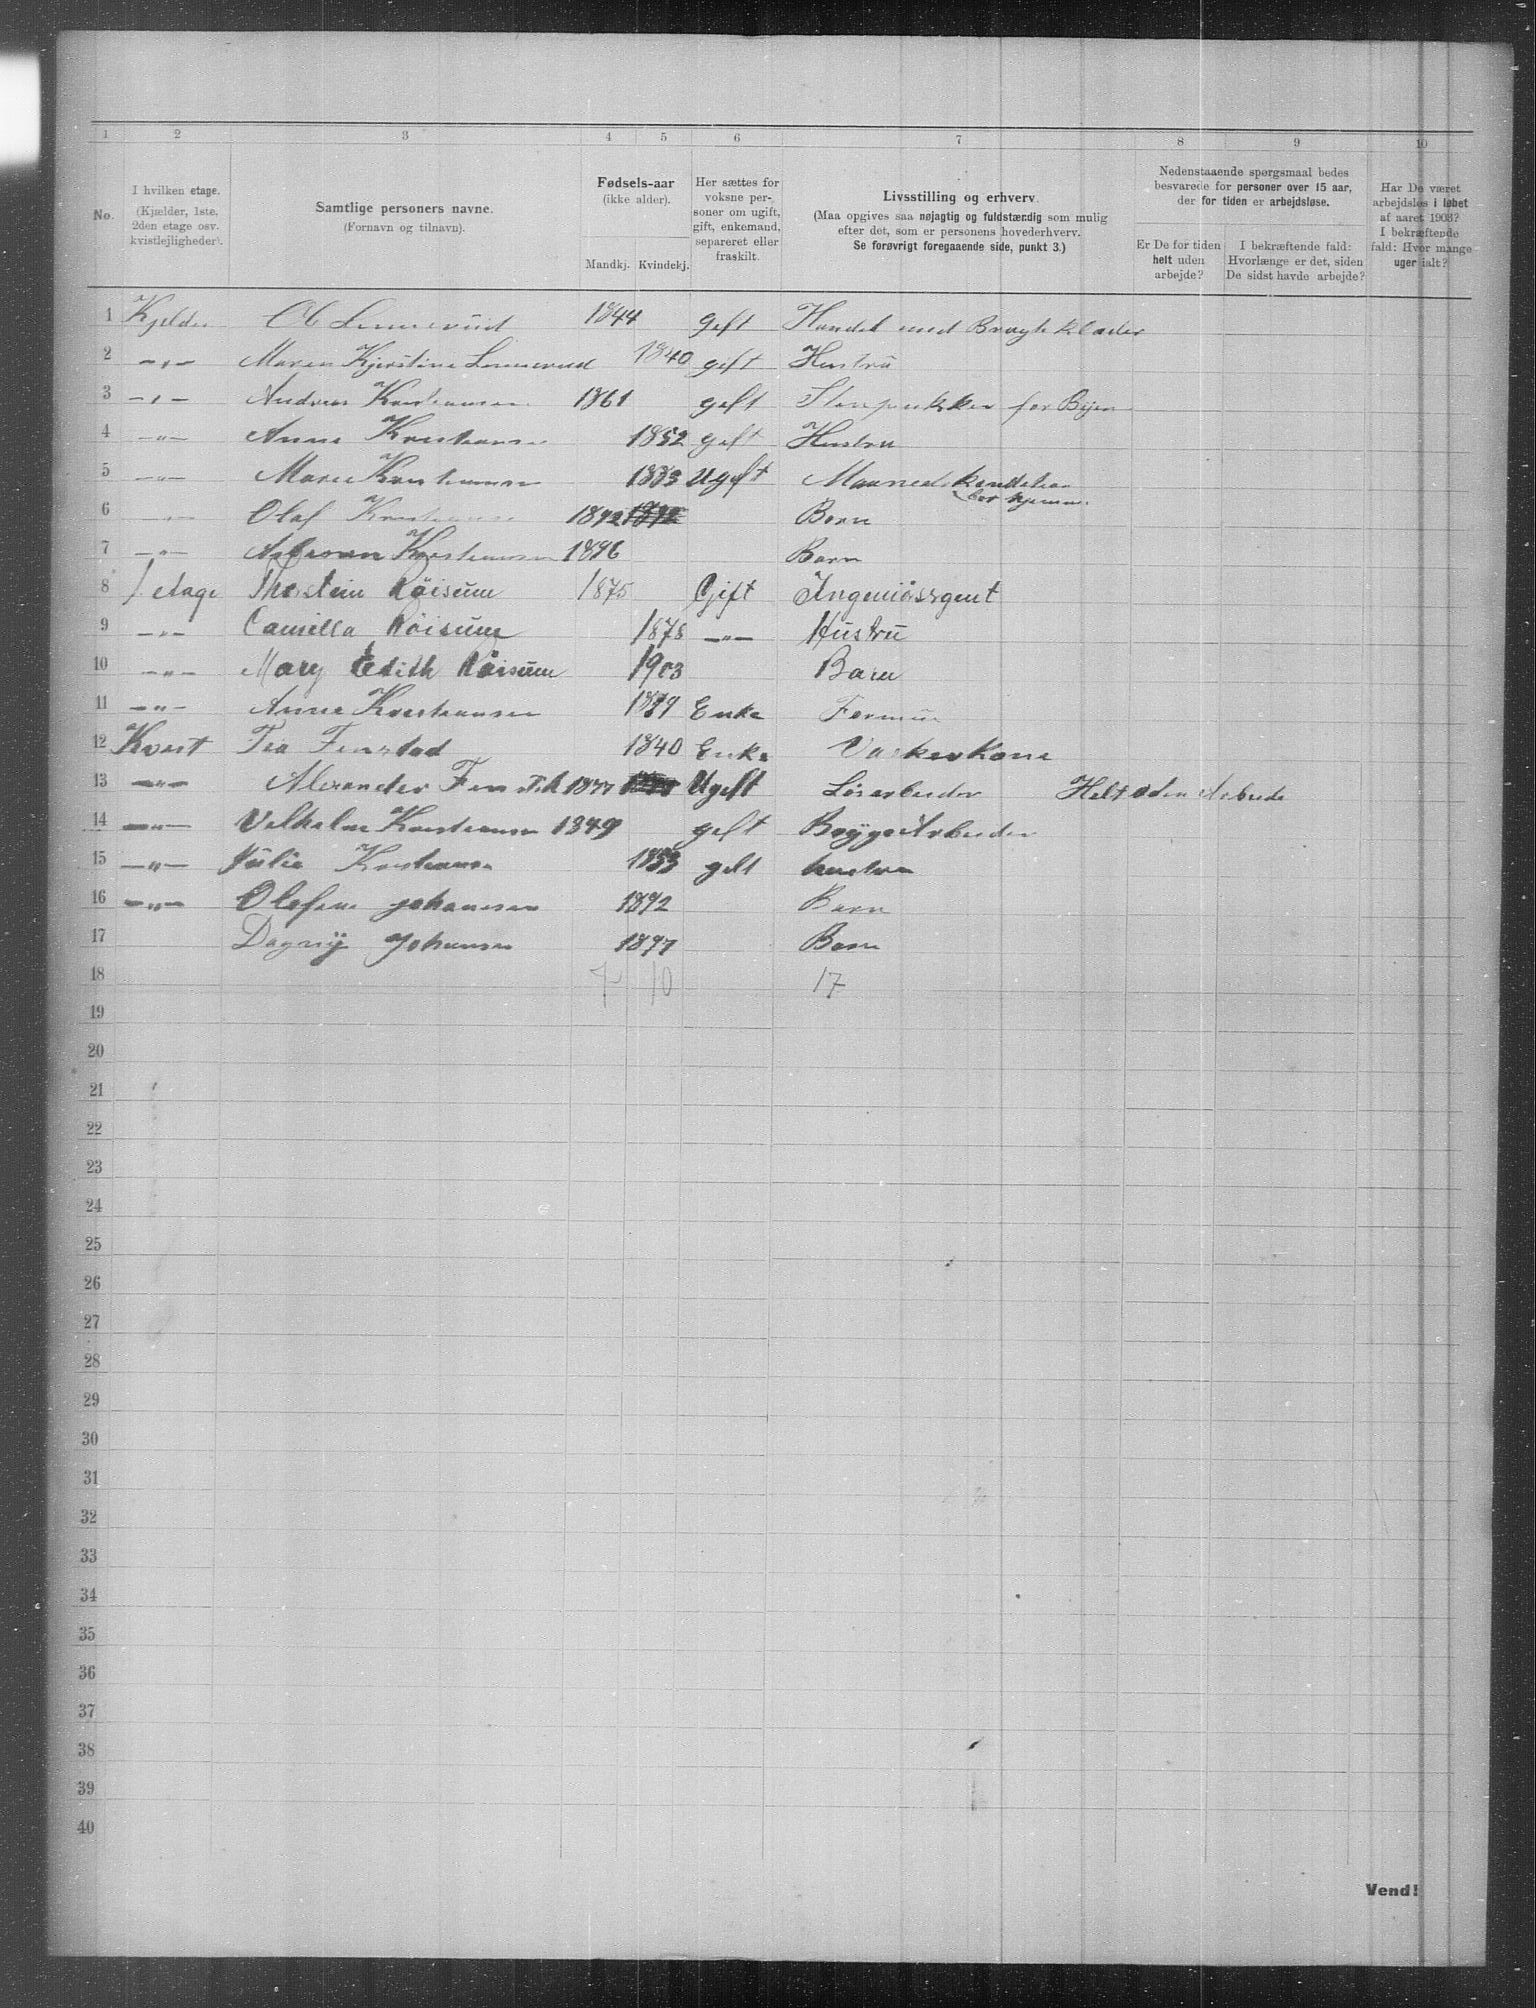 1 2 3 4 5 6 7 8 9 10
No.
I hvilken etage.
(Kjælder, 1ste, 2den etage osv. kvistlejligheder).
Samtlige personers navne.
(Fornavn og tilnavn).
Fødsels-aar
(ikke alder).
Mandkj. Kvindekj.
Her sættes for voksne personer om ugift, gift, enkemand, separeret eller fraskilt.
Livsstilling og erhverv.
(Maa opgives saa nøjagtig og fuldstændig som mulig efter det, som er personens hovederhverv.
Se forøvrigt foregaaende side, punkt 3.)
Nedenstaaende spørgsmaal bedes besvarede for personer over 15 aar, der for tiden er arbejdsløse.
Er De for tiden helt uden arbejde?
I bekræftende fald: Hvorlænge er det, siden De sidst havde arbejde?
Har De været arbejdsløs i løbet af aaret 1903? I bekræftende fald: Hvor mange uger ialt?
1 Kjelder Ol 1844 gift Handel med Brugte klæder
2 —„— Maren Kjerstine 1840 gift Hustru
3 —„— Andreas Kristiansen 1861 gift Stenpukker for Byen
4 —„— Anne Kristiansen 1852 gift Hustru
5 —„— Marie Kristiansen 1883 Ugift bor hjemme
6 —„— Olaf Kristiansen 1892 Barn
7 —„— Kristiansen 1896 Barn
8 1 etage Thorstein Røisum 1875 Gift
9 —„— Camilla Røisum 1878 —„— Hustru
10 —„— Mary Edith Røisum 1903 Barn
11 —„— Anne Kristiansen Enke
12 Kvist Tea Finstad 1840 Enke Vaskerkone
13 —„— Alexander Finstad 1877 Ugift Løsarbeider Helt uden Arbeide
14 —„— Vilhelm Kristiansen 1849 gift Bryggearbeider
15 —„— Julie Kristiansen 1853 gift hustru
16 —„— Olefine Johansen 1892 Barn
17 Dagny Johansen 1897 Barn
18 7 10 17
19
20
21
22
23
24
25
26
27
28
29
30
31
32
33
34
35
36
37
38
39
40
Vend!